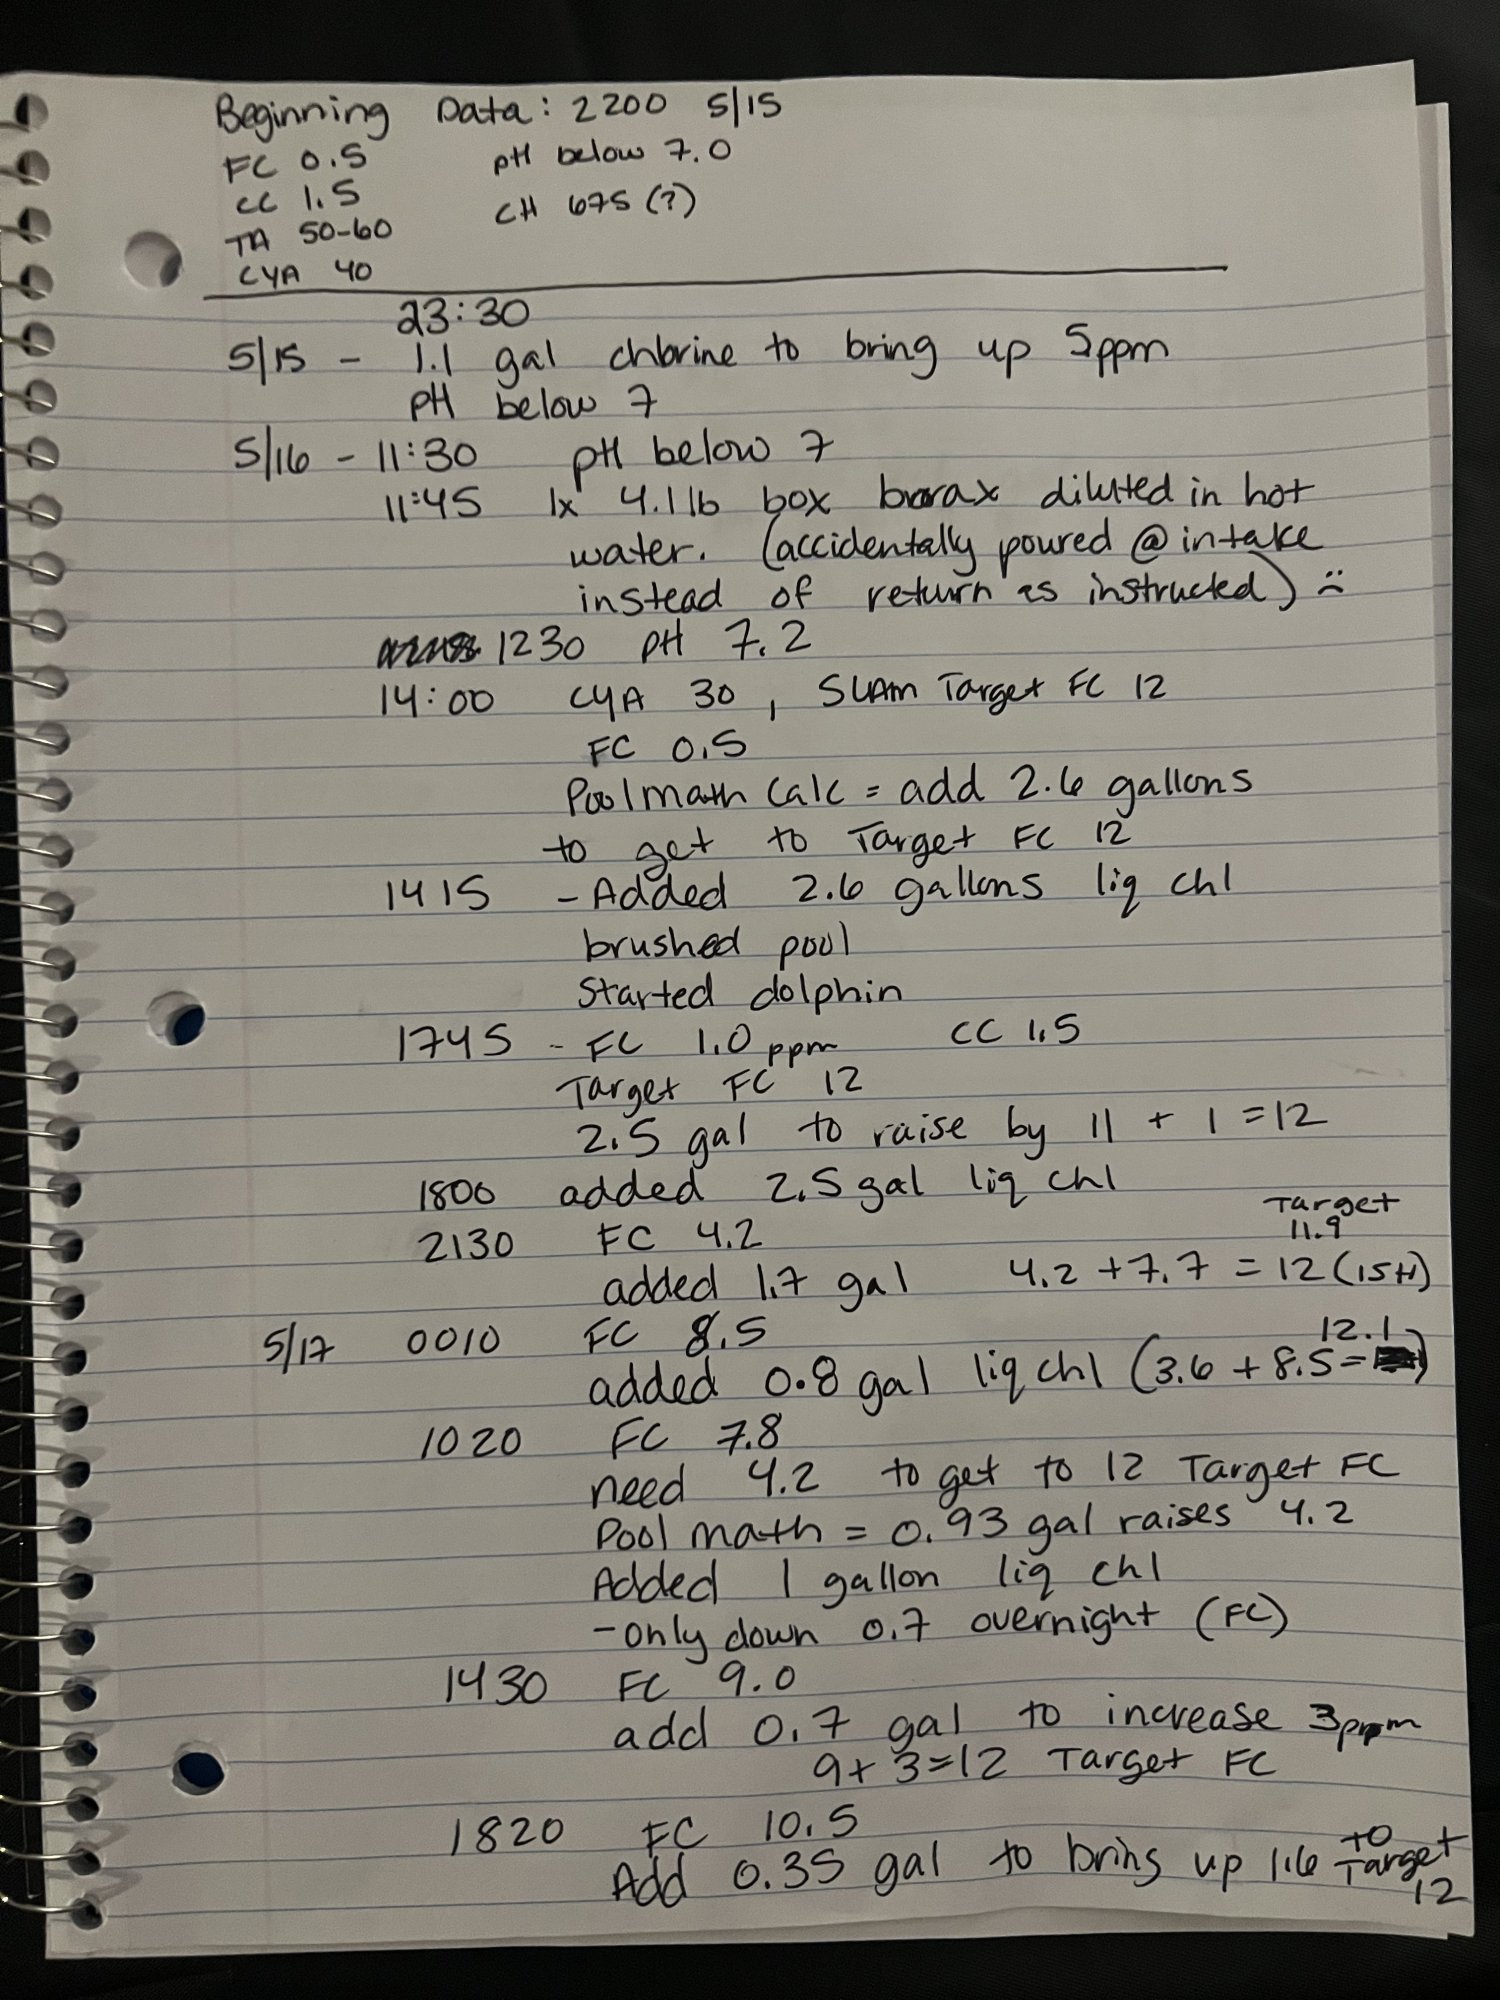 Beginning Data: 2200 5/15
FC 0.5 pH below 7.0
CC 1.5 CH 675 (?)
TA 50-60
CYA 40
23:30
5/15 - 1.1 gal chlorine to bring up 5ppm
pH below 7
5/16 - 11:30 pH below 7
11:45 1x 4.1 lb box borax diluted in hot
water. (accidentally poured @ intake
instead of return as instructed) :(
1230 pH 7.2
14:00 CYA 30, SLAM Target FC 12
FC 0.5
Poolmath Calc = add 2.6 gallons
to get to Target FC 12
1415 - Added 2.6 gallons liq chl
brushed pool
Started dolphin
1745 - FC 1.0 ppm CC 1.5
Target FC 12
2.5 gal to raise by 11 + 1 = 12
1800 added 2.5 gal liq chl
2130 FC 4.2
Target
11.9
added 1.7 gal 4.2 + 7.7 = 12 (ish)
5/17 0010 FC 8.5
12.1
added 0.8 gal liq chl (3.6 + 8.5 = )
1020 FC 7.8
need 4.2 to get to 12 Target FC
Pool math = 0.93 gal raises 4.2
Added 1 gallon liq chl
- only down 0.7 overnight (FC)
1430 FC 9.0
add 0.7 gal to increase 3ppm
9 + 3 = 12 Target FC
1820 FC 10.5
Add 0.35 gal to bring up 1.6 to Target
12